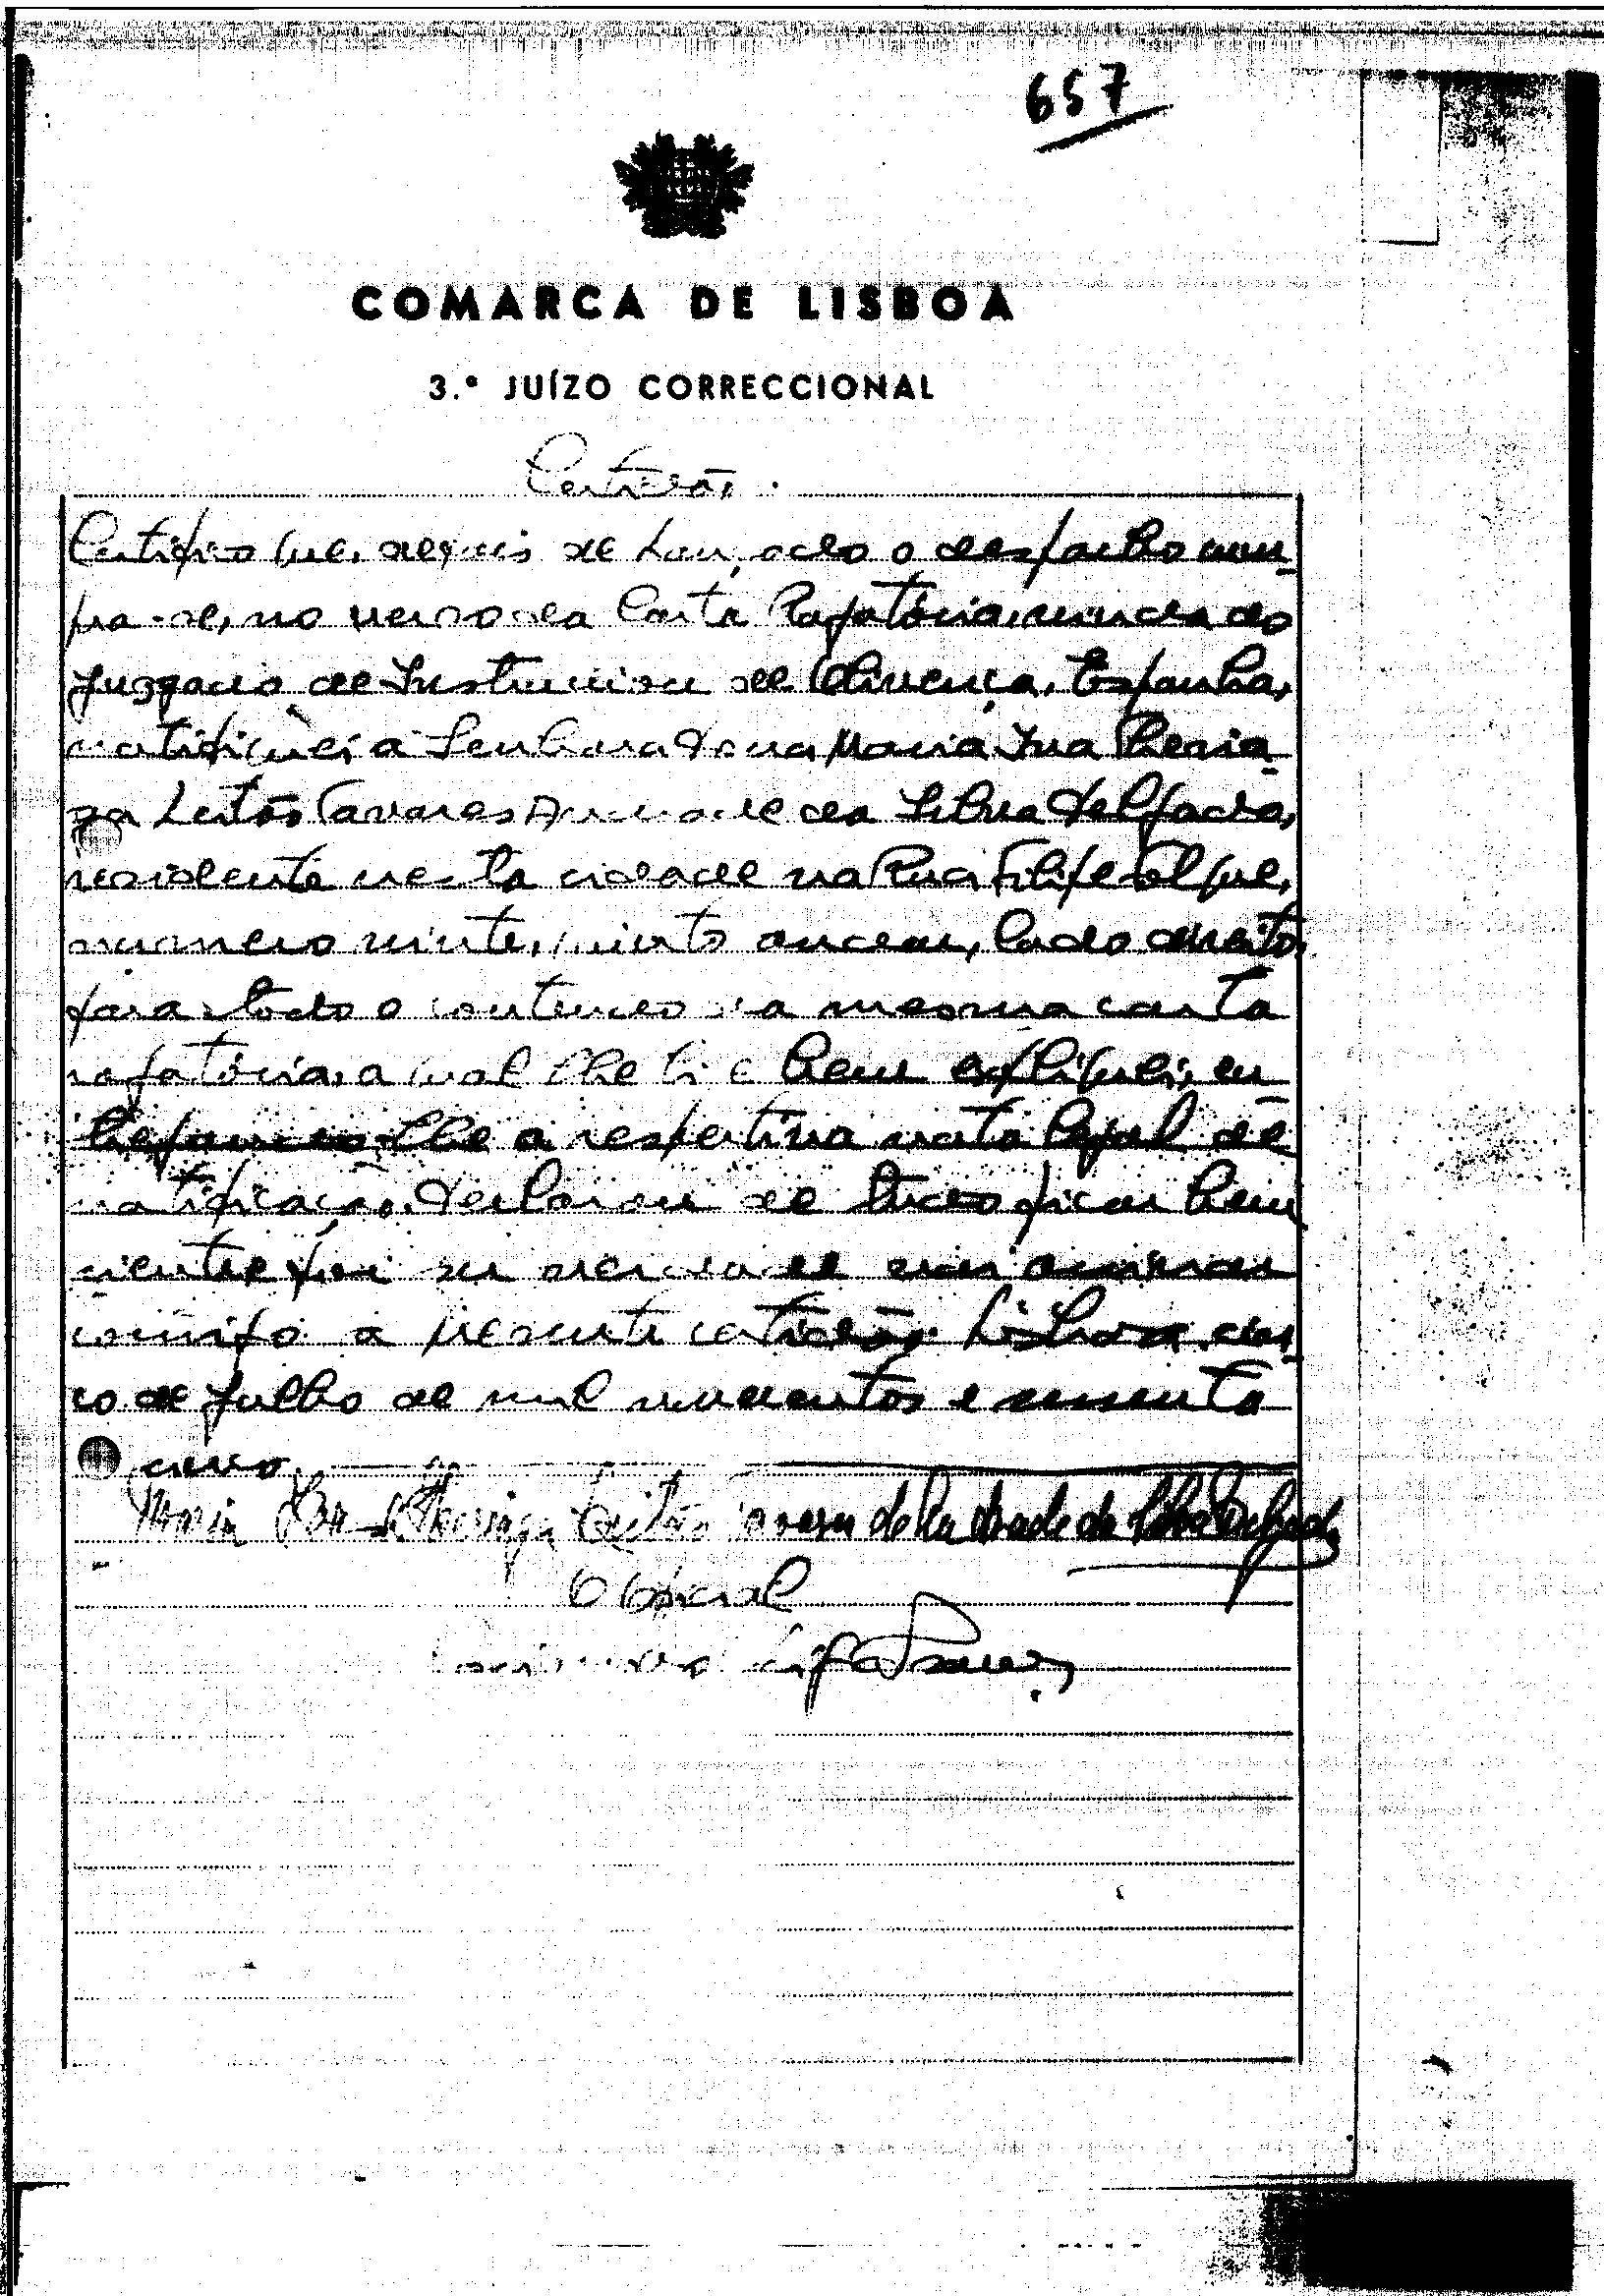 657
COMARCA DE LISBOA
3.º JUÍZO CORRECCIONAL
Certidão.
Certifico que, depois de dado o despacho cum-
pra-se, no verso da Carta Rogatória, vinda do
Juzgado de Instruccion de Olivença, Espanha,
notifiquei a Senhora Dona Maria Iva Theria-
ga Leitão Tavares Andrade da Silva Delgado,
residente nesta cidade na Rua Filipe Folque,
numero vinte, quinto andar, lado direito,
para todo o conteudo da mesma carta
rogatória, a qual lhe li e bem expliquei, en-
tregando-lhe a respectiva nota legal de
notificação. Declarou de tudo ficar bem
ciente e por ser verdade vai assinar
comigo a presente certidão. Lisboa, cin-
co de Julho de mil novecentos e sessenta
e cinco.
Maria Iva Theriaga Leitão Tavares de Andrade da Silva Delgado
O Oficial